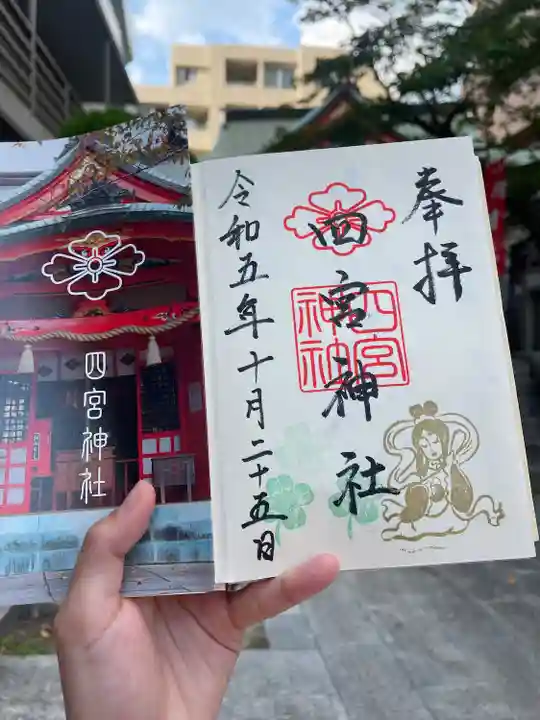 奉拝
四宮神社
四宮
神社
令和五年十月二十五日
四宮神社